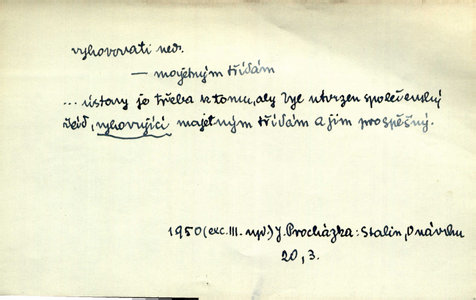 vyhovovati ned.
— majetným třídám
... ústavy je třeba k tomu, aby byl utvrzen společenský
řád, vyhovující majetným třídám a jim prospěšný.
1950 (exc. III. vyd.) J. Procházka: Stalin, O návrhu
20, 3.